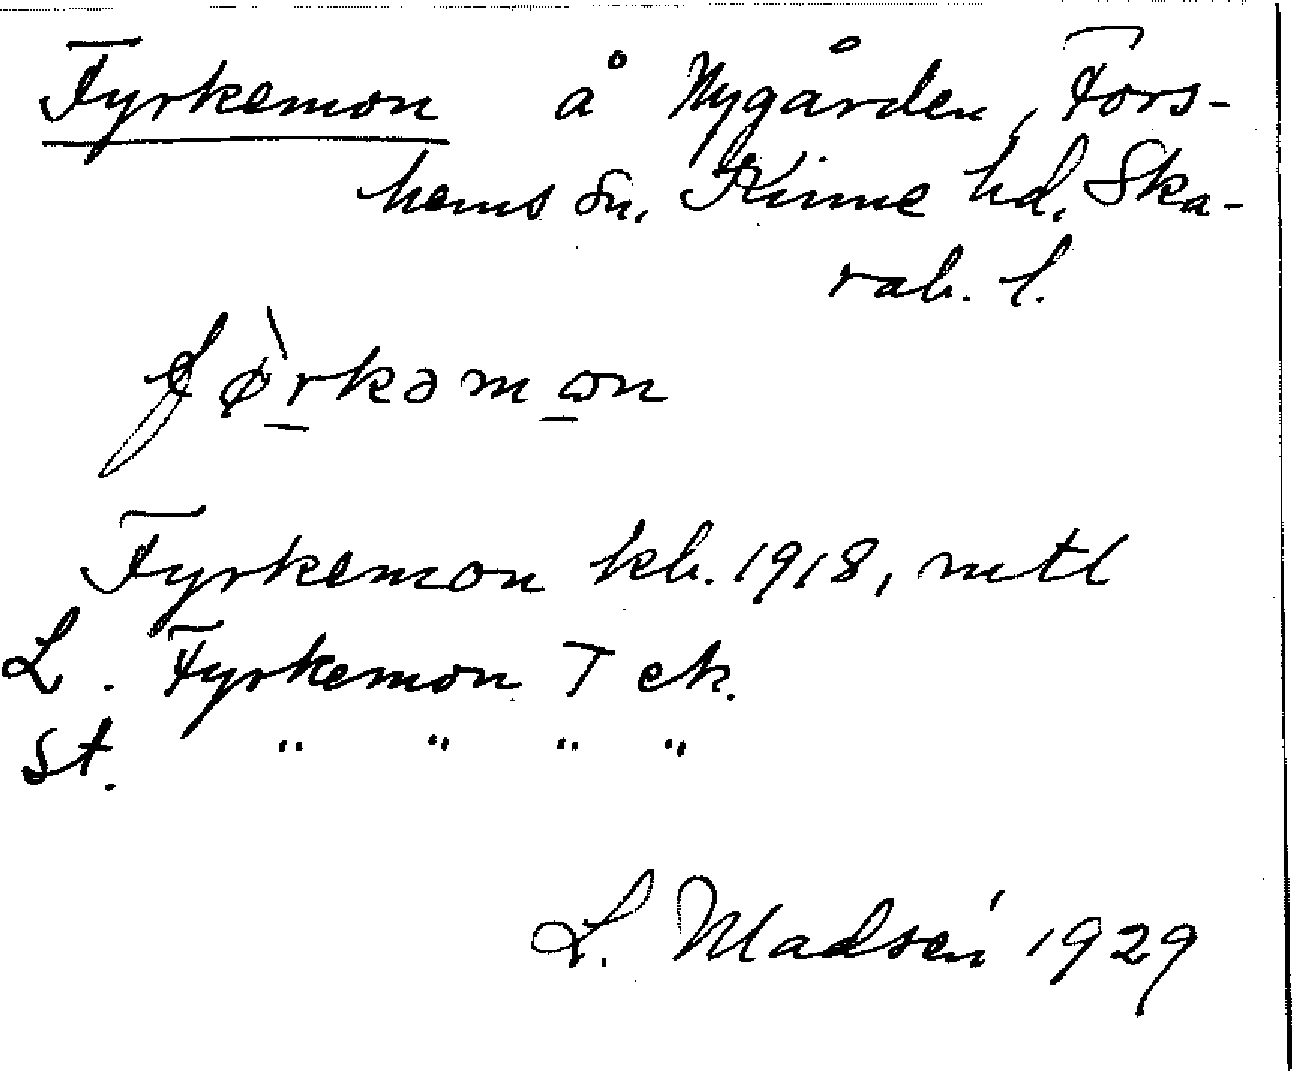 Fyrkemon å Nygården, Fors-
hems sn. Kinne hd. Ska-
rab. l.
fø̀rkəmɷn
Fyrkemon kb. 1918, mtl
L. Fyrkemon T ek.
St. " " " "
L. Madsén 1929